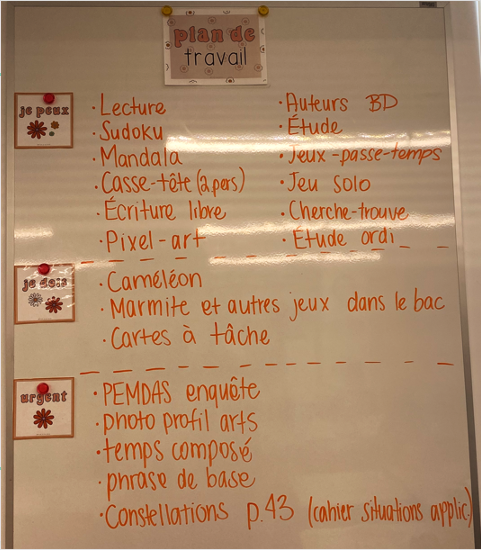 plan de
travail
je peux
· Lecture
· Sudoku
· Mandala
· Casse-tête (2 pers)
· Écriture libre
· Pixel-art
· Auteurs BD
· Étude
· Jeux-passe-temps
· Jeu solo
· Cherche-trouve
· Étude ordi
je dois
· Caméléon
· Marmite et autres jeux dans le bac
· Cartes à tâche
urgent
· PEMDAS enquête
· photo profil arts
· temps composé
· phrase de base
· Constellations p.43 (cahier situations applic.)